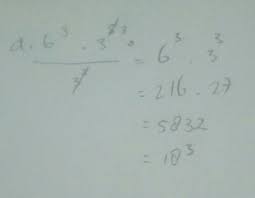 6³ . 3
3 = 6³ . 3³
= 216 . 27
= 5832
= 18³